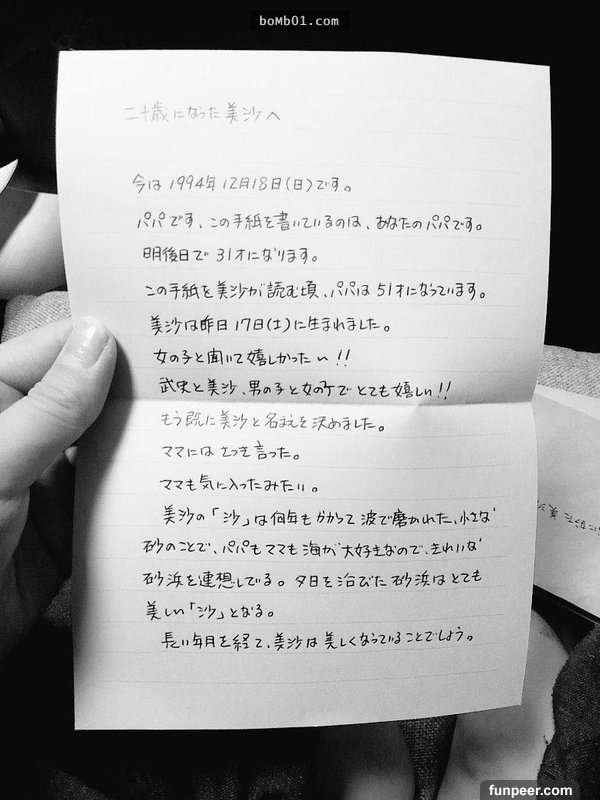 boMb01.com
二十歳になった美沙へ
今は1994年12月18日(日)です。
パパです、この手紙を書いているのは、あなたのパパです。
明後日で31才になります。
この手紙を美沙が読む頃、パパは51才になっています。
美沙は昨日17日(土)に生まれました。
女の子と聞いて嬉しかったい!!
武史と美沙、男の子と女の子でとても嬉しい!!
もう既に美沙と名まえを決めました。
ママにはさっき言った。
ママも気に入ったみたい。
美沙の「沙」は何年もかかって波で磨かれた、小さな
砂のことで、パパもママも海が大好きなので、きれいな
砂浜を連想してる。夕日を浴びた砂浜はとても
美しい「沙」となる。
長い年月を経て、美沙は美しくなっていることでしょう。
funpeer.com